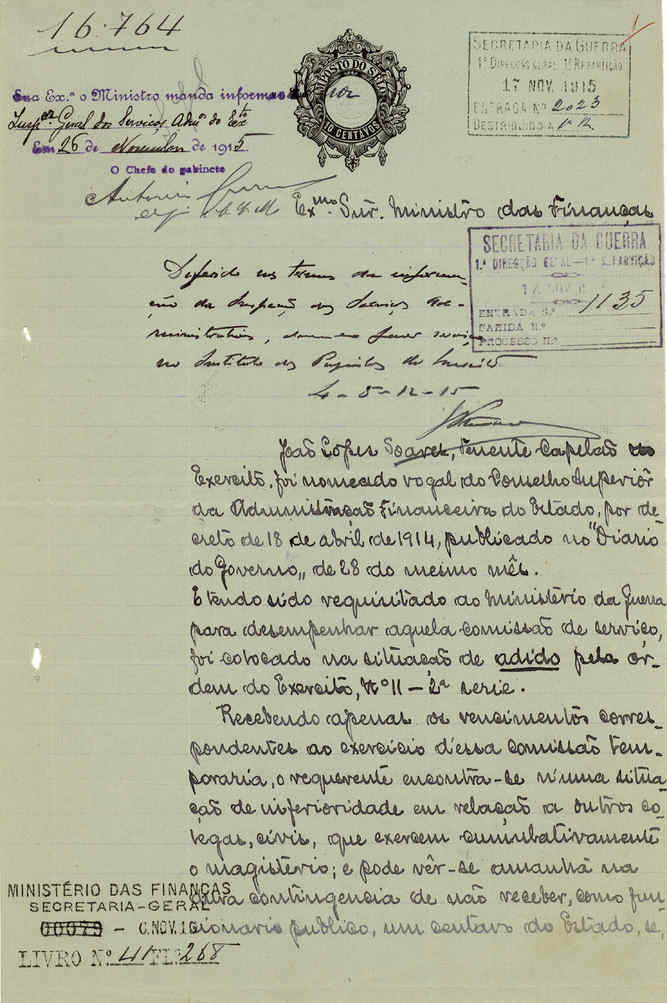 16.764
SECRETARIA DA GUERRA
1ª DIRECÇÃO GERAL 1ª REPARTIÇÃO
17 NOV. 1915
ENTRADA Nº 2023
DESTRIBUIDO A 1ª R
IMPOSTO DO SELO
10 CENTAVOS
Sua Ex.ª o Ministro manda informar
Insp.ᵒʳ Geral dos Serviços Adm.ᵒˢ do Ex.ᵗᵒ
Em 26 de Novembro de 1915
O Chefe do gabinete
Antonio
Exmo. Snr. Ministro das Finanças
SECRETARIA DA GUERRA
1.ª DIRECÇÃO GERAL—1.ª REPARTIÇÃO
ENTRADA N.º 1135
SAHIDA N.º
PROCESSO N.º
Deferido nos termos da informa-
ção da Inspecção dos Serviços Ad-
ministrativos, devendo fazer serviço
no Instituto dos Pupilos do Exercito
4-5-12-15
João Lopes Soares, tenente capelão do
Exercito, foi nomeado vogal do Conselho Superiôr
da Administração Financeira do Estado, por de
creto de 18 de abril de 1914, publicado no "Diario
do Governo,, de 28 do mesmo mês.
E tendo sido requisitado ao Ministério da Guerra
para desempenhar aquela comissão de serviço,
foi colocado na situação de adido pela ór-
dem do Exercito, Nº 11 – 2ª serie.
Recebendo apenas os vencimentos corres-
pondentes ao exercicio dessa comissão tem-
poraria, o requerente encontra-se n'uma situa-
ção de inferioridade em relação a outros co-
legas, civis, que exercem cumulativamente
o magistério; e pode vêr-se amanhã na
dura contingencia de não receber, como fun-
cionario publico, um centavo do Estado, se,
MINISTÉRIO DAS FINANÇAS
SECRETARIA-GERAL
00079 - 6.NOV.15
LIVRO Nº 41 Fl. 268